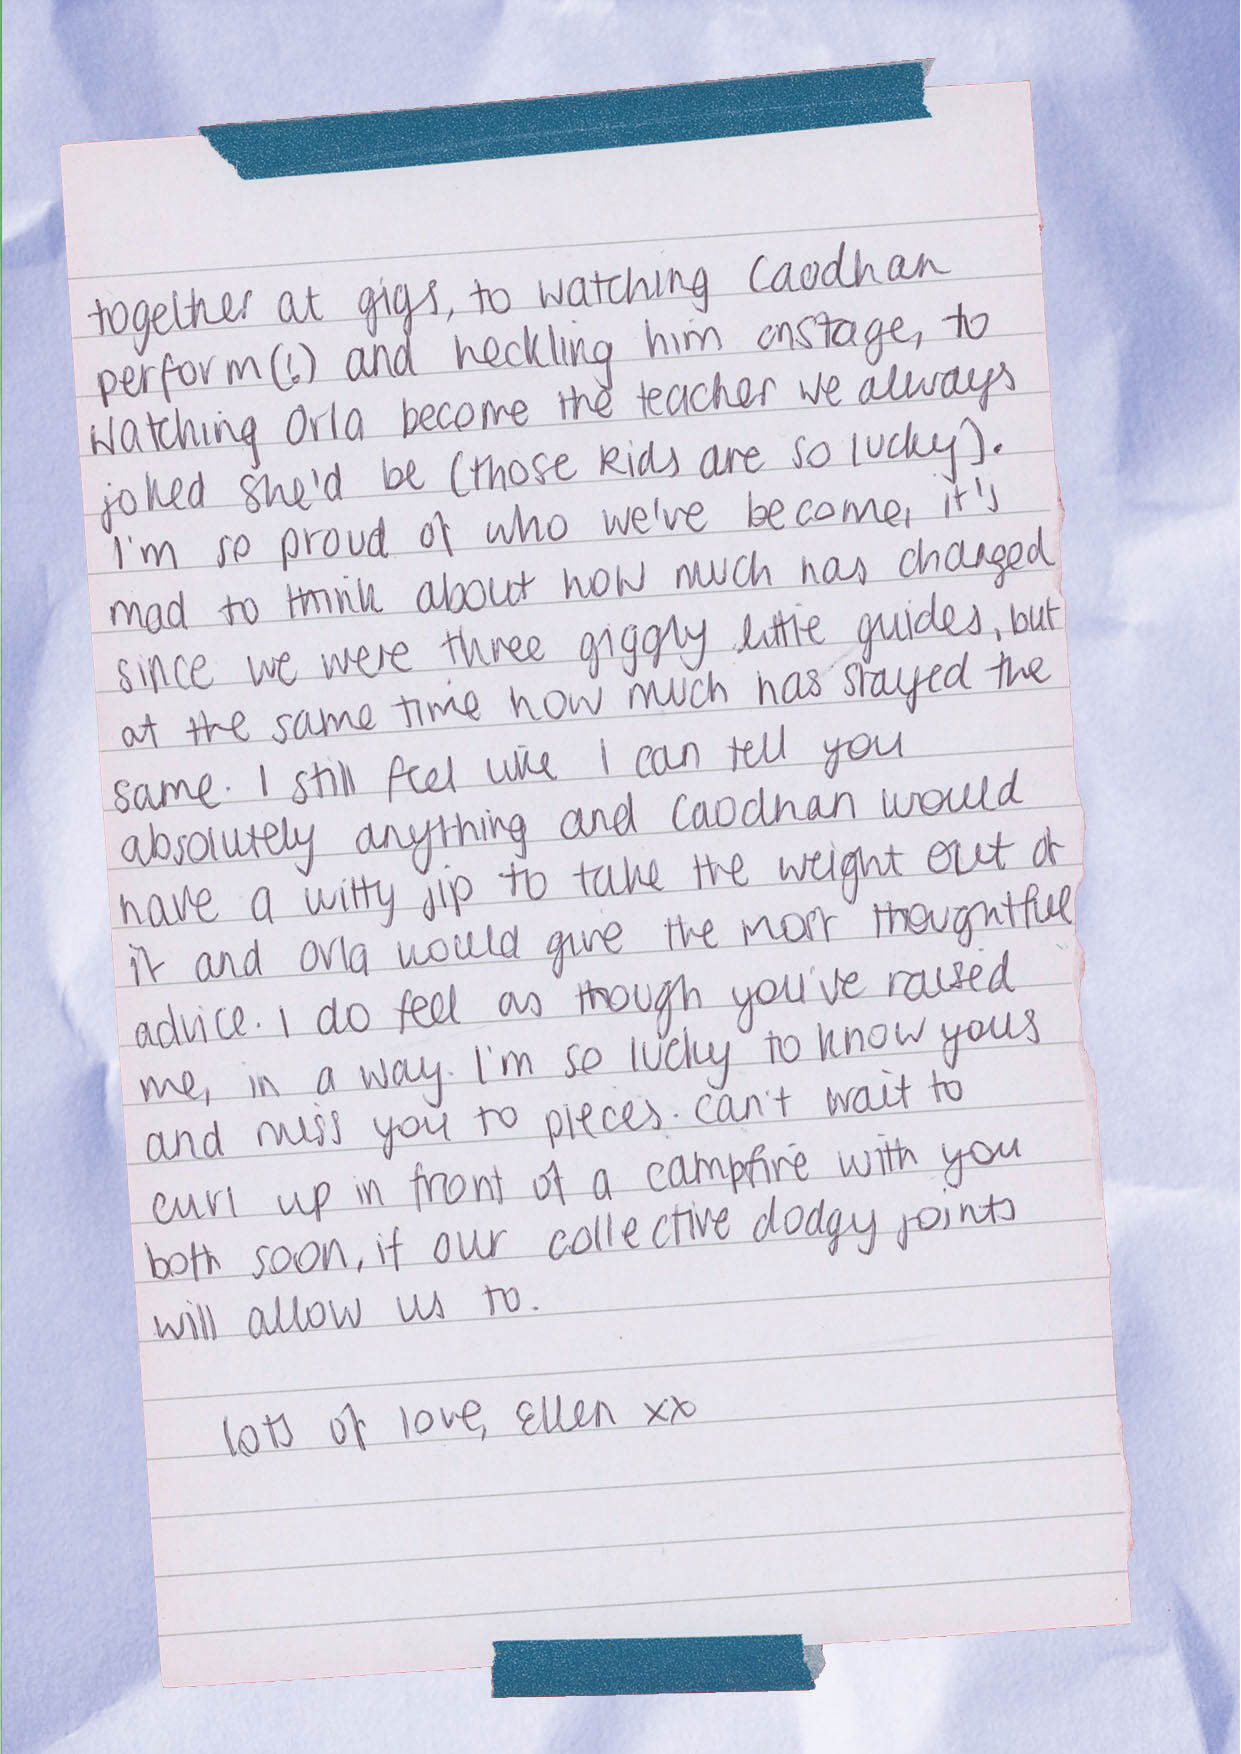 together at gigs, to watching Caodhan
perform(!) and heckling him onstage, to
watching Orla become the teacher we always
joked she'd be (those kids are so lucky).
I'm so proud of who we've become, it's
mad to think about how much has changed
since we were three giggly little guides, but
at the same time how much has stayed the
same. I still feel like I can tell you
absolutely anything and Caodhan would
have a witty jip to take the weight out of
it and Orla would give the most thoughtful
advice. I do feel as though you've raised
me, in a way. I'm so lucky to know yous
and miss you to pieces. Can't wait to
curl up in front of a campfire with you
both soon, if our collective dodgy joints
will allow us to.
lots of love, Ellen xx